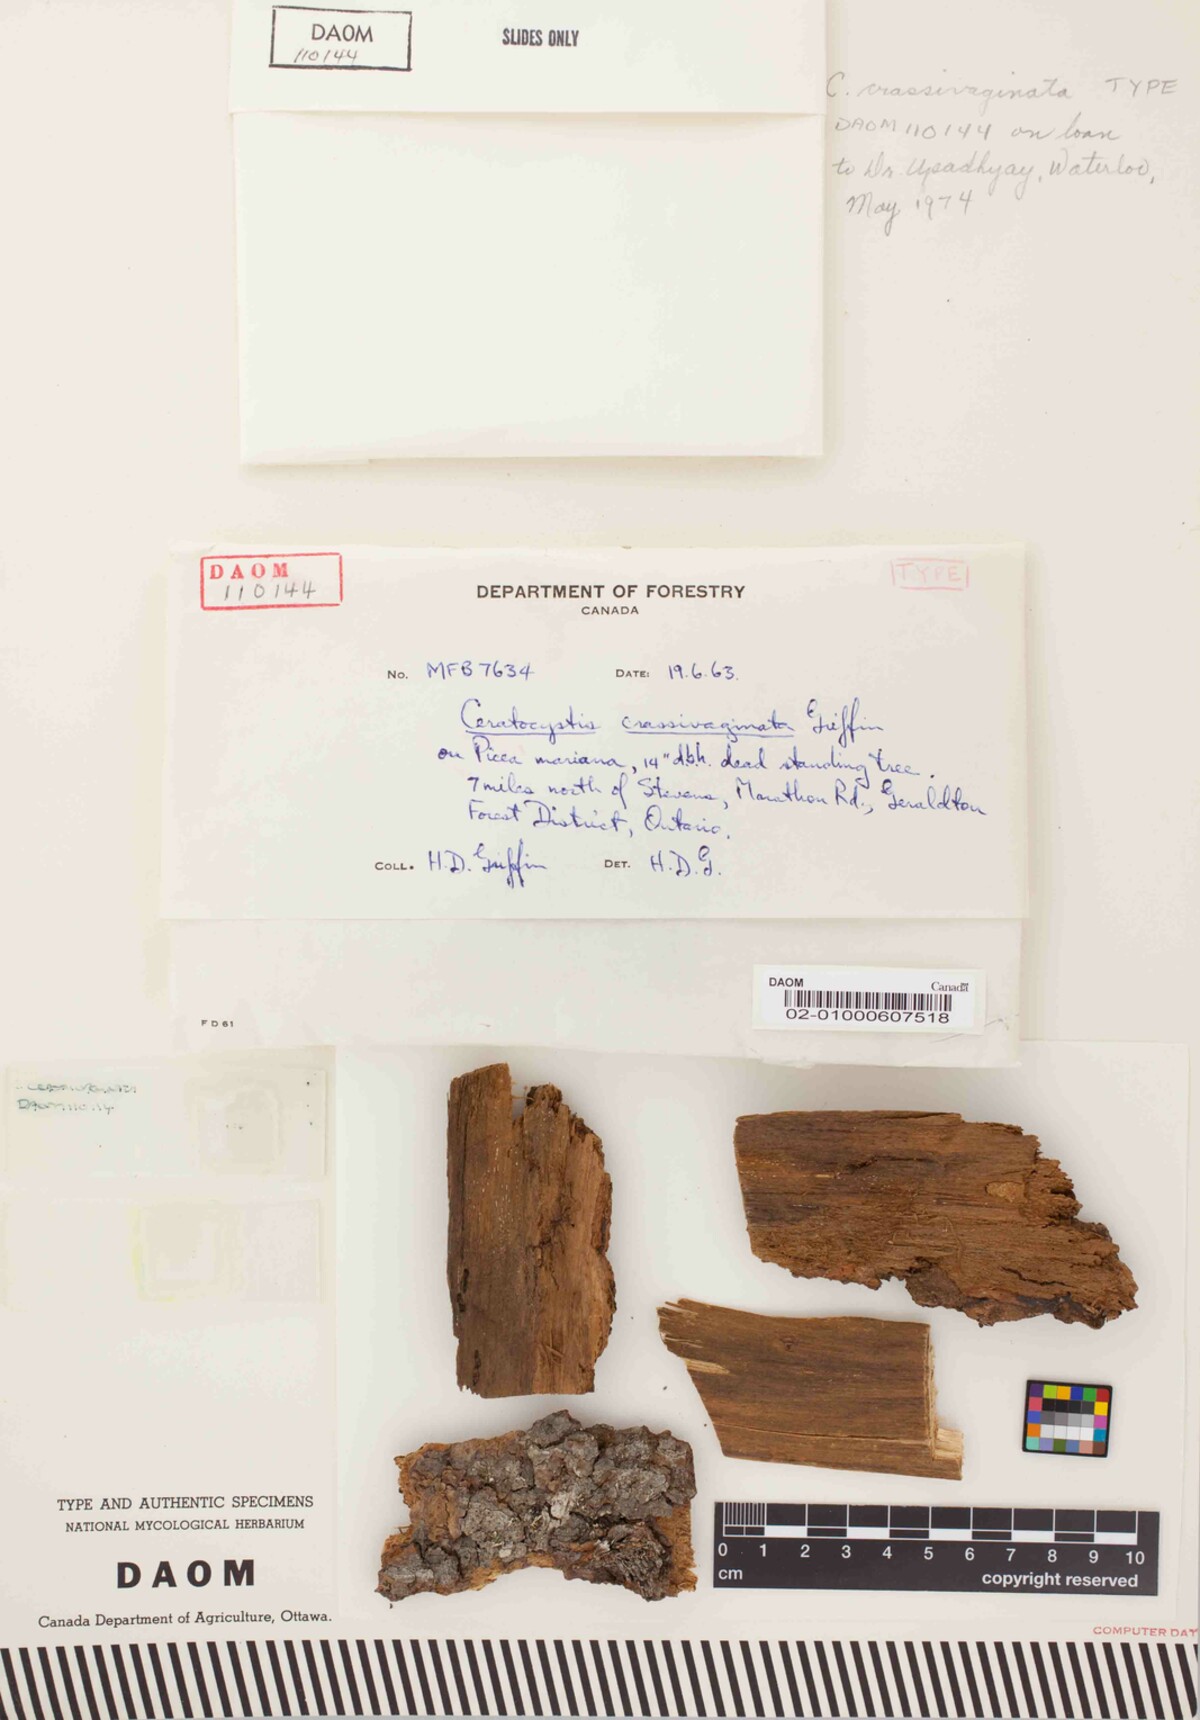 DAOM
110144
SLIDES ONLY
C. crassivaginata TYPE
DAOM 110144 on loan
to Dr. Upadhyay, Waterloo,
May 1974
DAOM
110144
TYPE
DEPARTMENT OF FORESTRY
CANADA
No. MFB 7634 DATE: 19.6.63.
Ceratocystis crassivaginata Griffin
on Picea mariana, 14" d.b.h. dead standing tree.
7 miles north of Stevens, Marathon Rd., Geraldton
Forest District, Ontario.
COLL. H.D. Griffin DET. H.D.G.
DAOM Canada
02-01000607518
F D 61
TYPE AND AUTHENTIC SPECIMENS
NATIONAL MYCOLOGICAL HERBARIUM
DAOM
Canada Department of Agriculture, Ottawa.
0 1 2 3 4 5 6 7 8 9 10
cm
copyright reserved
COMPUTER DAT